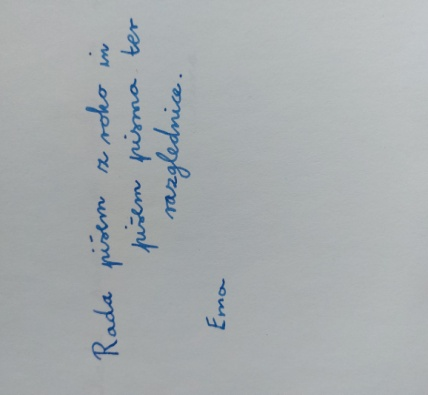 Rada pišem z roko in
pišem pisma ter
razglednice.
Ema